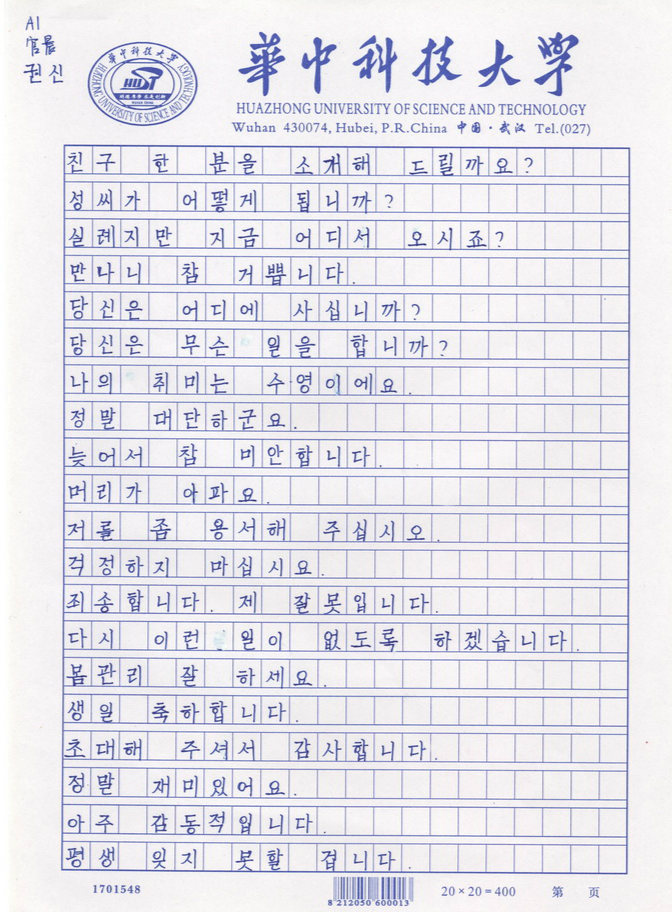 A1
官晨
권신
華中科技大学
HUAZHONG UNIVERSITY OF SCIENCE AND TECHNOLOGY
Wuhan 430074, Hubei, P.R.China 中国·武汉 Tel.(027)
친구 한 분을 소개해 드릴까요?
성씨가 어떻게 됩니까?
실례지만 지금 어디서 오시죠?
만나니 참 거쁩니다.
당신은 어디에 사십니까?
당신은 무슨 일을 합니까?
나의 취미는 수영이에요.
정말 대단하군요.
늦어서 참 미안합니다.
머리가 아파요.
저를 좁 용서해 주십시오.
걱정하지 마십시요.
죄송합니다. 제 잘못입니다.
다시 이런 일이 없도록 하겠습니다.
봄관리 잘 하세요.
생일 축하합니다.
초대해 주셔서 감사합니다.
정말 재미있어요.
아주 감동적입니다.
평생 잊지 못할 겁니다.
1701548
8 212050 600013
20×20=400
第 页